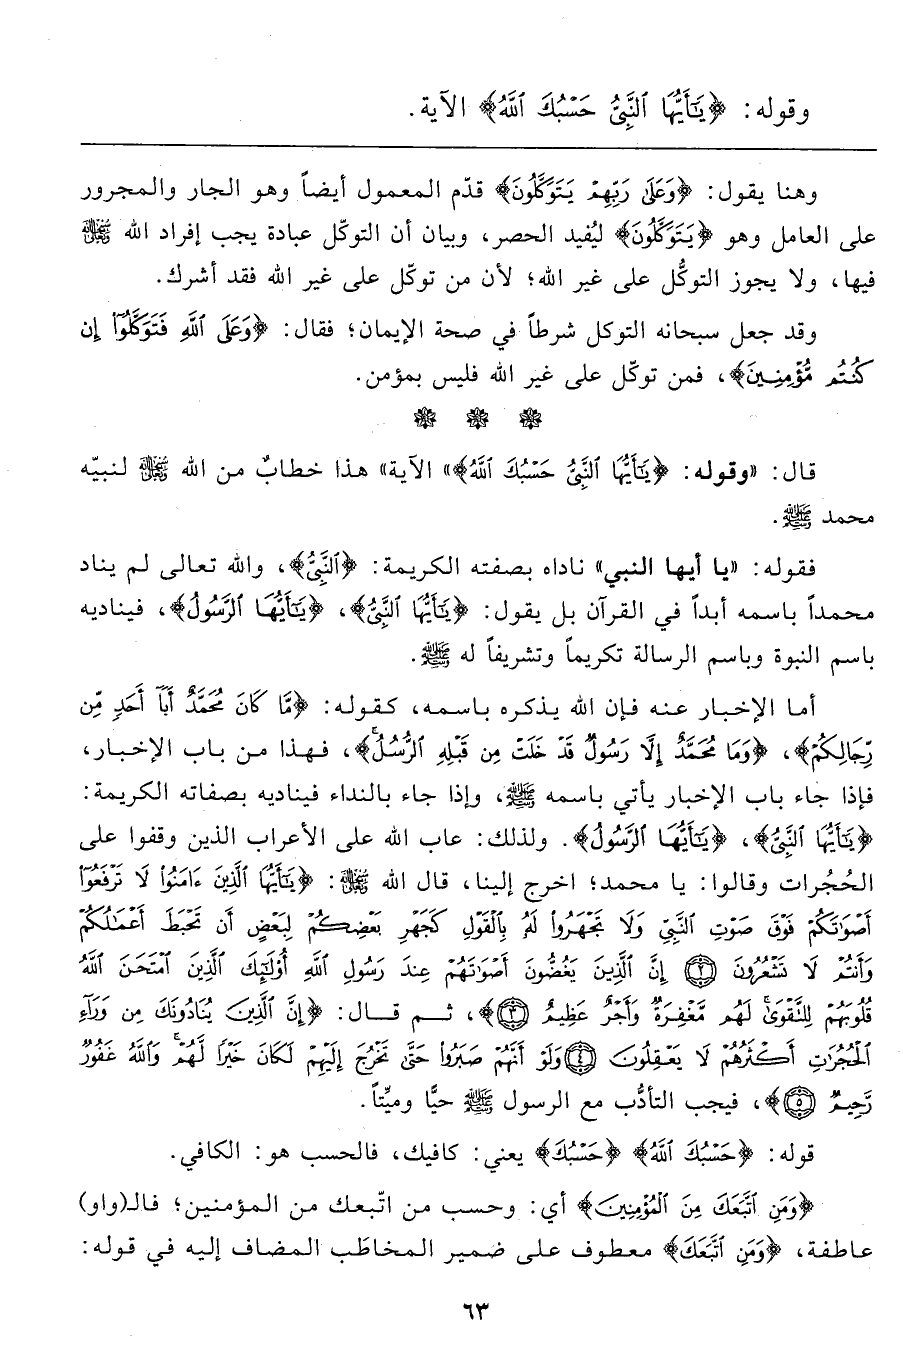 وقوله: ﴿يَٰٓأَيُّهَا ٱلنَّبِىُّ حَسْبُكَ ٱللَّهُ﴾ الآية.
وهنا يقول: ﴿وَعَلَىٰ رَبِّهِمْ يَتَوَكَّلُونَ﴾ قدّم المعمول أيضاً وهو الجار والمجرور
على العامل وهو ﴿يَتَوَكَّلُونَ﴾ ليُفيد الحصر، وبيان أن التوكّل عبادة يجب إفراد الله ﷻ
فيها، ولا يجوز التوكُّل على غير الله؛ لأن من توكّل على غير الله فقد أشرك.
وقد جعل سبحانه التوكل شرطاً في صحة الإيمان؛ فقال: ﴿وَعَلَى ٱللَّهِ فَتَوَكَّلُوٓا۟ إِن
كُنتُم مُّؤْمِنِينَ﴾، فمن توكّل على غير الله فليس بمؤمن.
قال: «وقوله: ﴿يَٰٓأَيُّهَا ٱلنَّبِىُّ حَسْبُكَ ٱللَّهُ﴾» الآية» هذا خطابٌ من الله ﷻ لنبيّه
محمد ﷺ.
فقوله: «يا أيها النبي» ناداه بصفته الكريمة: ﴿ٱلنَّبِىُّ﴾، والله تعالى لم يناد
محمداً باسمه أبداً في القرآن بل يقول: ﴿يَٰٓأَيُّهَا ٱلنَّبِىُّ﴾، ﴿يَٰٓأَيُّهَا ٱلرَّسُولُ﴾، فيناديه
باسم النبوة وباسم الرسالة تكريماً وتشريفاً له ﷺ.
أما الإخبار عنه فإن الله يذكره باسمه، كقوله: ﴿مَّا كَانَ مُحَمَّدٌ أَبَآ أَحَدٍ مِّن
رِّجَالِكُمْ﴾، ﴿وَمَا مُحَمَّدٌ إِلَّا رَسُولٌ قَدْ خَلَتْ مِن قَبْلِهِ ٱلرُّسُلُ﴾، فهذا من باب الإخبار،
فإذا جاء باب الإخبار يأتي باسمه ﷺ، وإذا جاء بالنداء فيناديه بصفاته الكريمة:
﴿يَٰٓأَيُّهَا ٱلنَّبِىُّ﴾، ﴿يَٰٓأَيُّهَا ٱلرَّسُولُ﴾. ولذلك: عاب الله على الأعراب الذين وقفوا على
الحُجُرات وقالوا: يا محمد؛ اخرج إلينا، قال الله ﷻ: ﴿يَٰٓأَيُّهَا ٱلَّذِينَ ءَامَنُوا۟ لَا تَرْفَعُوٓا۟
أَصْوَٰتَكُمْ فَوْقَ صَوْتِ ٱلنَّبِىِّ وَلَا تَجْهَرُوا۟ لَهُۥ بِٱلْقَوْلِ كَجَهْرِ بَعْضِكُمْ لِبَعْضٍ أَن تَحْبَطَ أَعْمَٰلُكُمْ
وَأَنتُمْ لَا تَشْعُرُونَ ۝٢ إِنَّ ٱلَّذِينَ يَغُضُّونَ أَصْوَٰتَهُمْ عِندَ رَسُولِ ٱللَّهِ أُو۟لَٰٓئِكَ ٱلَّذِينَ ٱمْتَحَنَ ٱللَّهُ
قُلُوبَهُمْ لِلتَّقْوَىٰ لَهُم مَّغْفِرَةٌ وَأَجْرٌ عَظِيمٌ ۝٣﴾، ثم قال: ﴿إِنَّ ٱلَّذِينَ يُنَادُونَكَ مِن وَرَآءِ
ٱلْحُجُرَٰتِ أَكْثَرُهُمْ لَا يَعْقِلُونَ ۝٤ وَلَوْ أَنَّهُمْ صَبَرُوا۟ حَتَّىٰ تَخْرُجَ إِلَيْهِمْ لَكَانَ خَيْرًا لَّهُمْ وَٱللَّهُ غَفُورٌ
رَّحِيمٌ ۝٥﴾، فيجب التأدُّب مع الرسول ﷺ حيًّا وميِّتاً.
قوله: ﴿حَسْبُكَ ٱللَّهُ﴾ ﴿حَسْبُكَ﴾ يعني: كافيك، فالحسب هو: الكافي.
﴿وَمَنِ ٱتَّبَعَكَ مِنَ ٱلْمُؤْمِنِينَ﴾ أي: وحسب من اتّبعك من المؤمنين؛ فالـ(واو)
عاطفة، ﴿وَمَنِ ٱتَّبَعَكَ﴾ معطوف على ضمير المخاطَب المضاف إليه في قوله:
٦٣